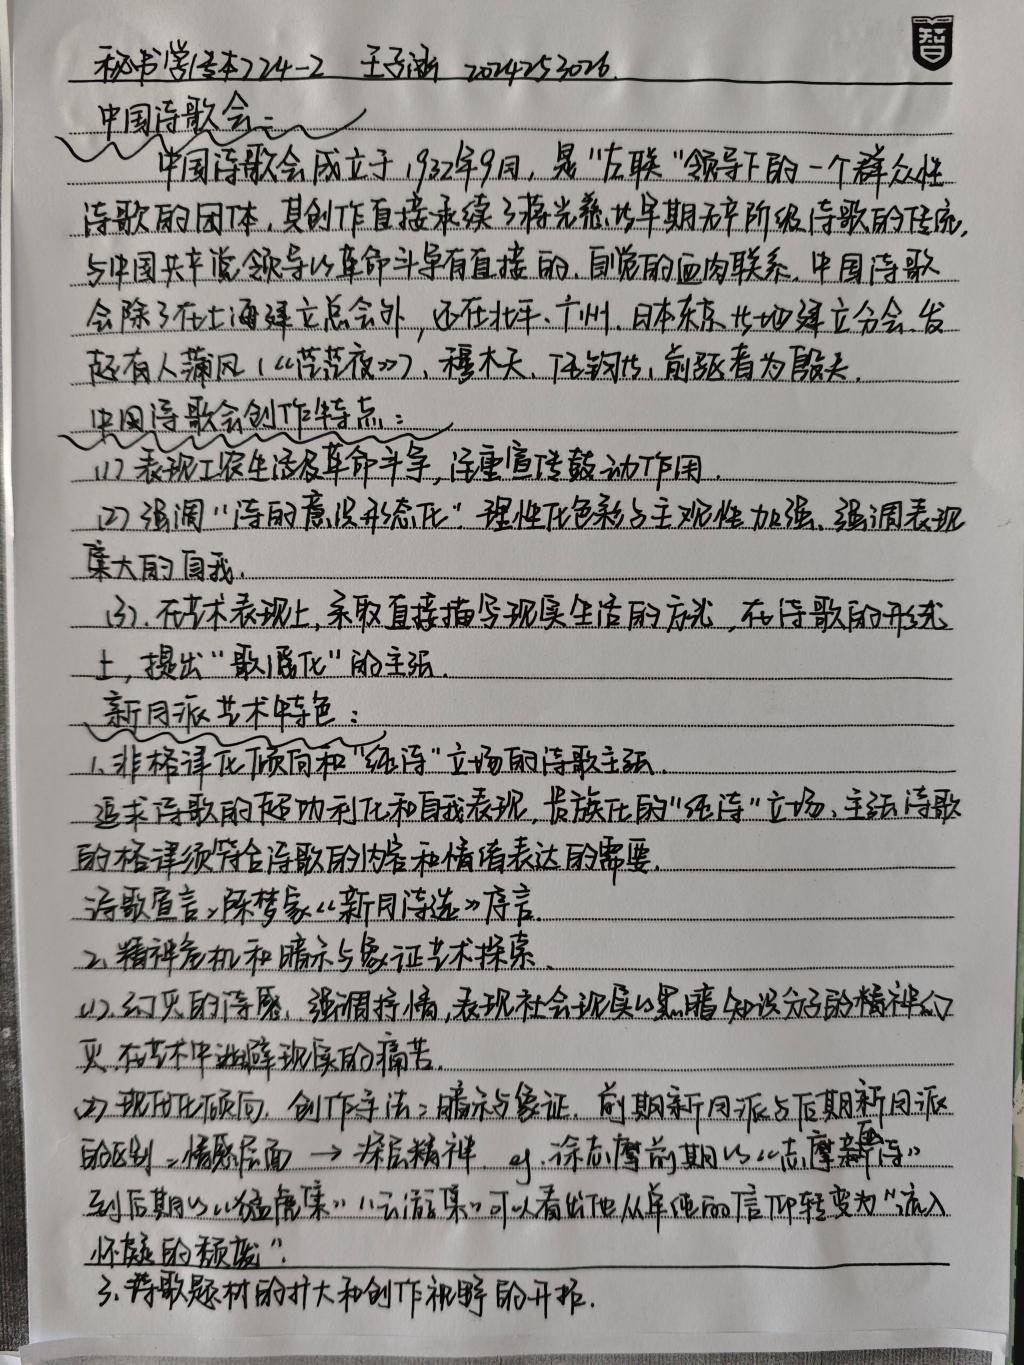 智
秘书学(专本)24-2 王子涵 2024253026.
中国诗歌会:
中国诗歌会成立于1932年9月，是"左联"领导下的一个群众性
诗歌的团体，其创作直接承续了蒋光慈等早期无产阶级诗歌的传统，
与中国共产党领导的革命斗争有直接的、自觉的血肉联系。中国诗歌
会除了在上海建立总会外，还在北平、广州、日本东京等地建立分会。发
起有人蒲风（《茫茫夜》）、穆木天、任钧等，前驱者为殷夫.
中国诗歌会创作特点:
(1) 表现工农生活及革命斗争，注重宣传鼓动作用.
(2) 强调"诗的意识形态化"理性化色彩与主观性加强、强调表现
集大的自我.
(3). 在艺术表现上，采取直接描写现实生活的方式，在诗歌的形式
上，提出"歌谣化"的主张.
新月派艺术特色:
1. 非格律化倾向和"纯诗"立场的诗歌主张.
追求诗歌的超功利化和自我表现，贵族化的"纯诗"立场、主张诗歌
的格律须符合诗歌的内容和情绪表达的需要.
诗歌宣言>陈梦家《新月诗选》序言.
2、精神危机和暗示与象证艺术探索、
(1). 幻灭的诗感、强调抒情，表现社会现实的黑暗知识分子的精神幻
灭、在艺术中逃避现实的痛苦.
(2) 现代化倾向. 创作手法:暗示与象证. 前期新月派与后期新月派
的区别:情感层面→深层精神. eg.徐志摩前期的《志摩的诗》
到后期的《猛虎集》《云游集》可以看出他从单纯的信仰转变为"流入
怀疑的颓废".
3、诗歌题材的扩大和创作视野的开拓.